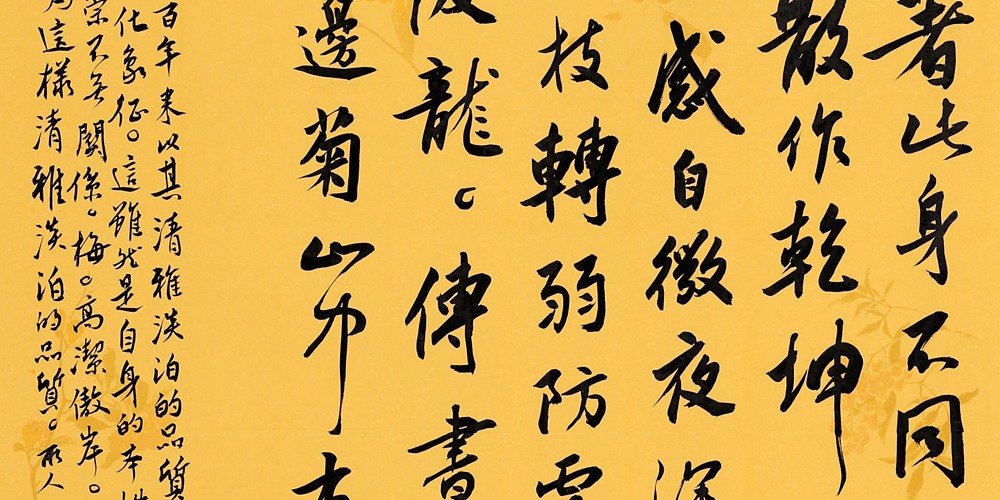 著此身不同
散作乾坤
感自微夜深
枝轉弱防雪
龍。傳書
邊菊山
百年来以其清雅淡泊的品質
化象征。這雖然是自身的本性
關係。梅。高潔傲岸。
這樣清雅淡泊的品質。